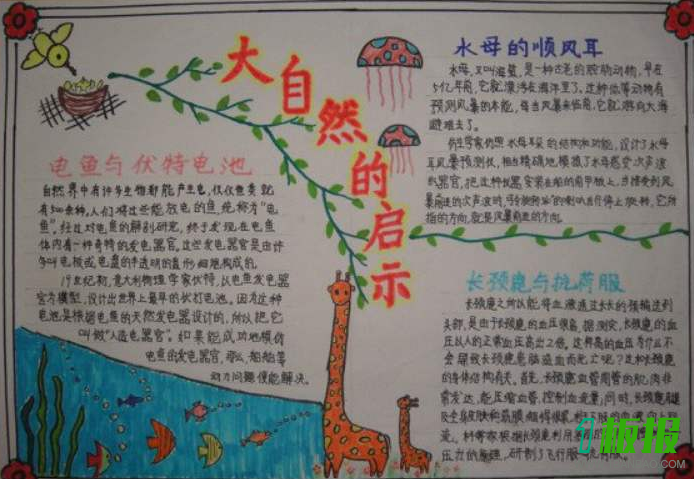 大自然的启示
电鱼与伏特电池
自然界中有许多生物都能产生电,仅仅鱼类就
有500余种,人们将这些能放电的鱼,统称为"电
鱼"。经过对电鱼的解剖研究,终于发现在电鱼
体内有一种奇特的发电器官,这些发电器官是由许
多叫电板或电盘的半透明的盘形细胞构成的。
19世纪初,意大利物理学家伏特,以电鱼发电器
官为模型,设计出世界上最早的伏打电池。因为这种
电池是根据电鱼的天然发电器设计的,所以把它
叫做"人造电器官"。如果能成功地模仿
电鱼的发电器官,那么,船舶等
动力问题便能解决。
水母的顺风耳
水母,又叫海蜇,是一种古老的腔肠动物,早在
5亿年前,它就漂浮在海洋里了。这种低等动物有
预测风暴的本能,每当风暴来临前,它就游向大海
避难去了。
仿生学家仿照水母耳朵的结构和功能,设计了水母
耳风暴预测仪,相当精确地模拟了水母感受次声波
的器官。把这种仪器安装在船的前甲板上,当接受到风
暴的次声波时,旋转的喇叭自行停止旋转,它所
指的方向,就是风暴前进的方向
长颈鹿与抗荷服
长颈鹿之所以能将血液通过长长的颈输送到
头部,是由于长颈鹿的血压很高。据测定,长颈鹿的血
压比人的正常血压高出2倍。这样高的血压为什么不
会导致长颈鹿患脑溢血而死亡呢?这和长颈鹿
的身体结构有关。首先,长颈鹿血管周围的肌肉非
常发达,能压缩血管,控制血流量;同时,长颈鹿腿
科学家根据长颈鹿利用
压力的原理,研制了飞行服
板报